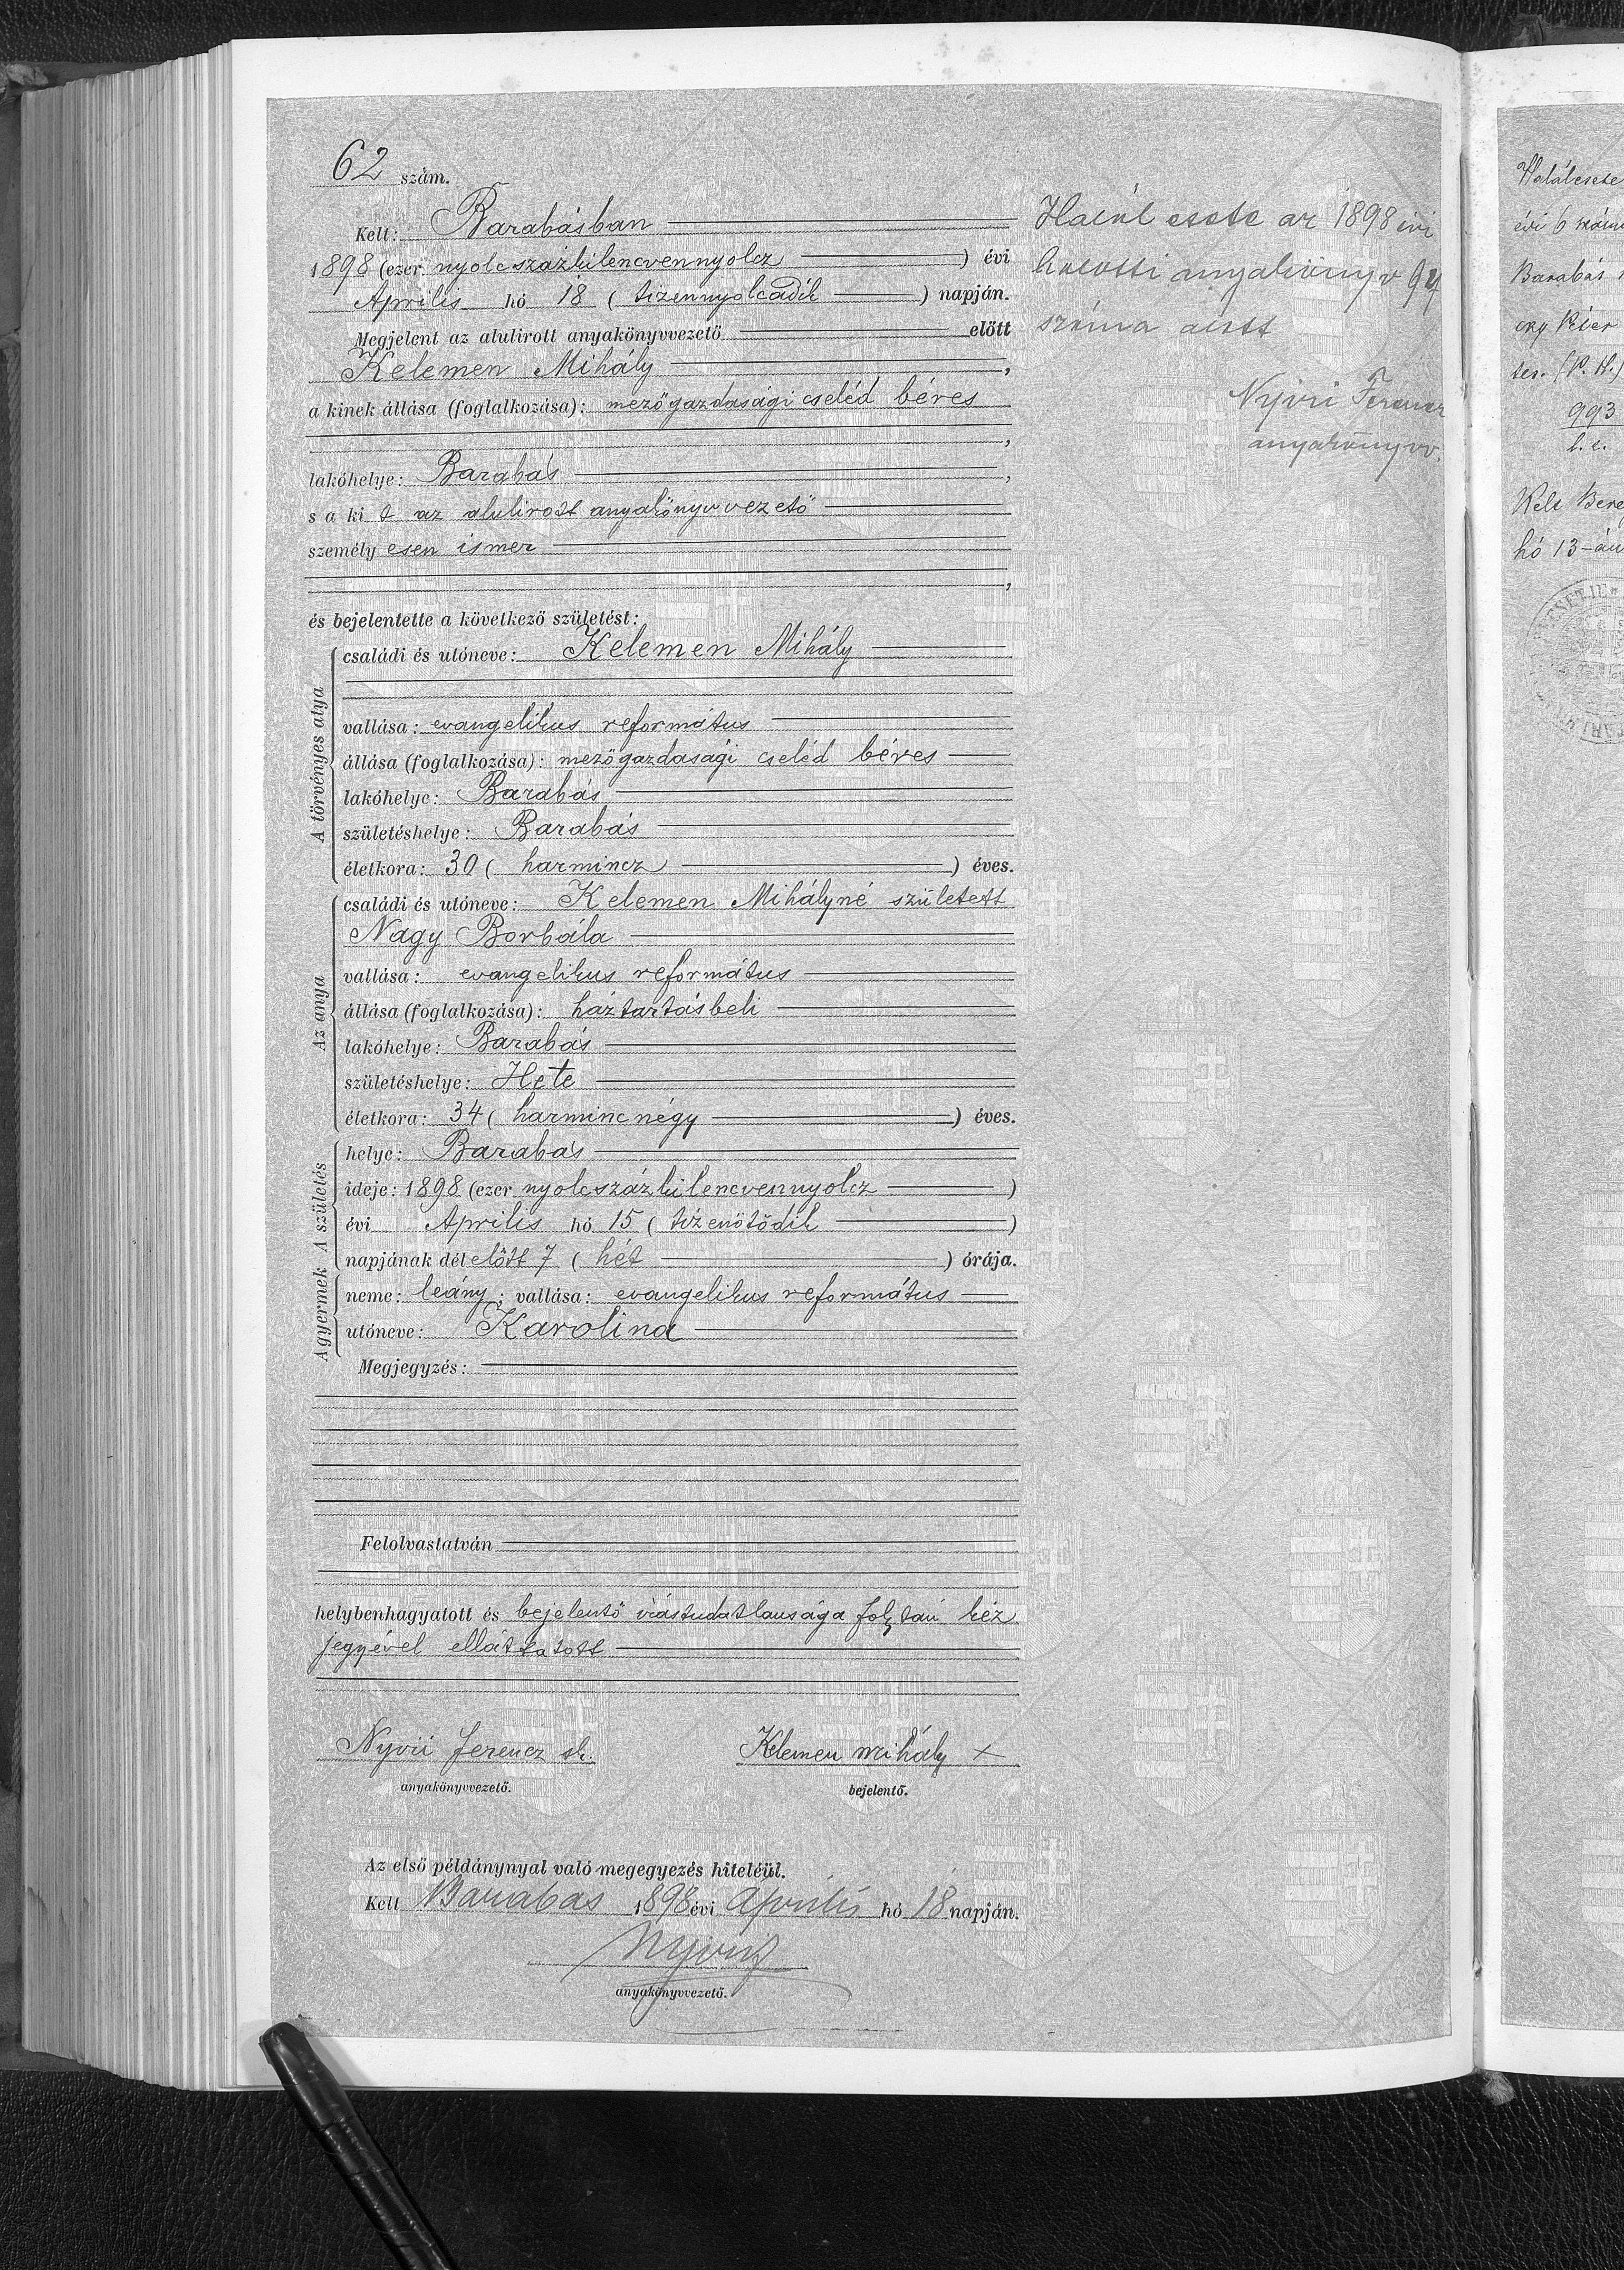 62 szám.
Kelt: Barabásban
1898 (ezer nyolcszázkilencvennyolcz) évi
Aprilis hó 18 (tizennyolcadik) napján.
Megjelent az alulirott anyakönyvvezető előtt
Kelemen Mihály,
a kinek állása (foglalkozása): mezőgazdasági cseléd béres
,
lakóhelye: Barabás,
s a ki t az alulirott anyakönyvvezető
személy esen ismer
,
és bejelentette a következő születést:
A törvényes atya
családi és utóneve: Kelemen Mihály
vallása: evangelikus református
állása (foglalkozása): mezőgazdasági cseléd béres
lakóhelye: Barabás
születéshelye: Barabás
életkora: 30 (harmincz) éves.
Az anya
családi és utóneve: Kelemen Mihályné született
Nagy Borbála
vallása: evangelikus református
állása (foglalkozása): háztartásbeli
lakóhelye: Barabás
születéshelye: Hete
életkora: 34 (harmincnégy) éves.
A születés
helye: Barabás
ideje: 1898 (ezer nyolcszázkilencvennyolcz)
évi Aprilis hó 15 (tizenötödik)
napjának dél előtt 7 (hét) órája.
A gyermek
neme: leány; vallása: evangelikus református
utóneve: Karolina
Megjegyzés:
Felolvastatván
helybenhagyatott és bejelentő irástudatlansága folytán kéz
jegyével elláttatott
Nyiri Ferencz sk. Kelemen Mihály x
anyakönyvvezető. bejelentő.
Az első példánynyal való megegyezés hiteléül.
Kelt Barabas 1898 évi Aprilis hó 18 napján.
anyakönyvvezető.
Halál esete az 1898 évi
halotti anyakönyv
száma alatt
Nyiri Ferencz
anyakönyvv.
Halálesete
évi 6 szám
Barabás
Péter
993
Kelt Bere
hó 13-án